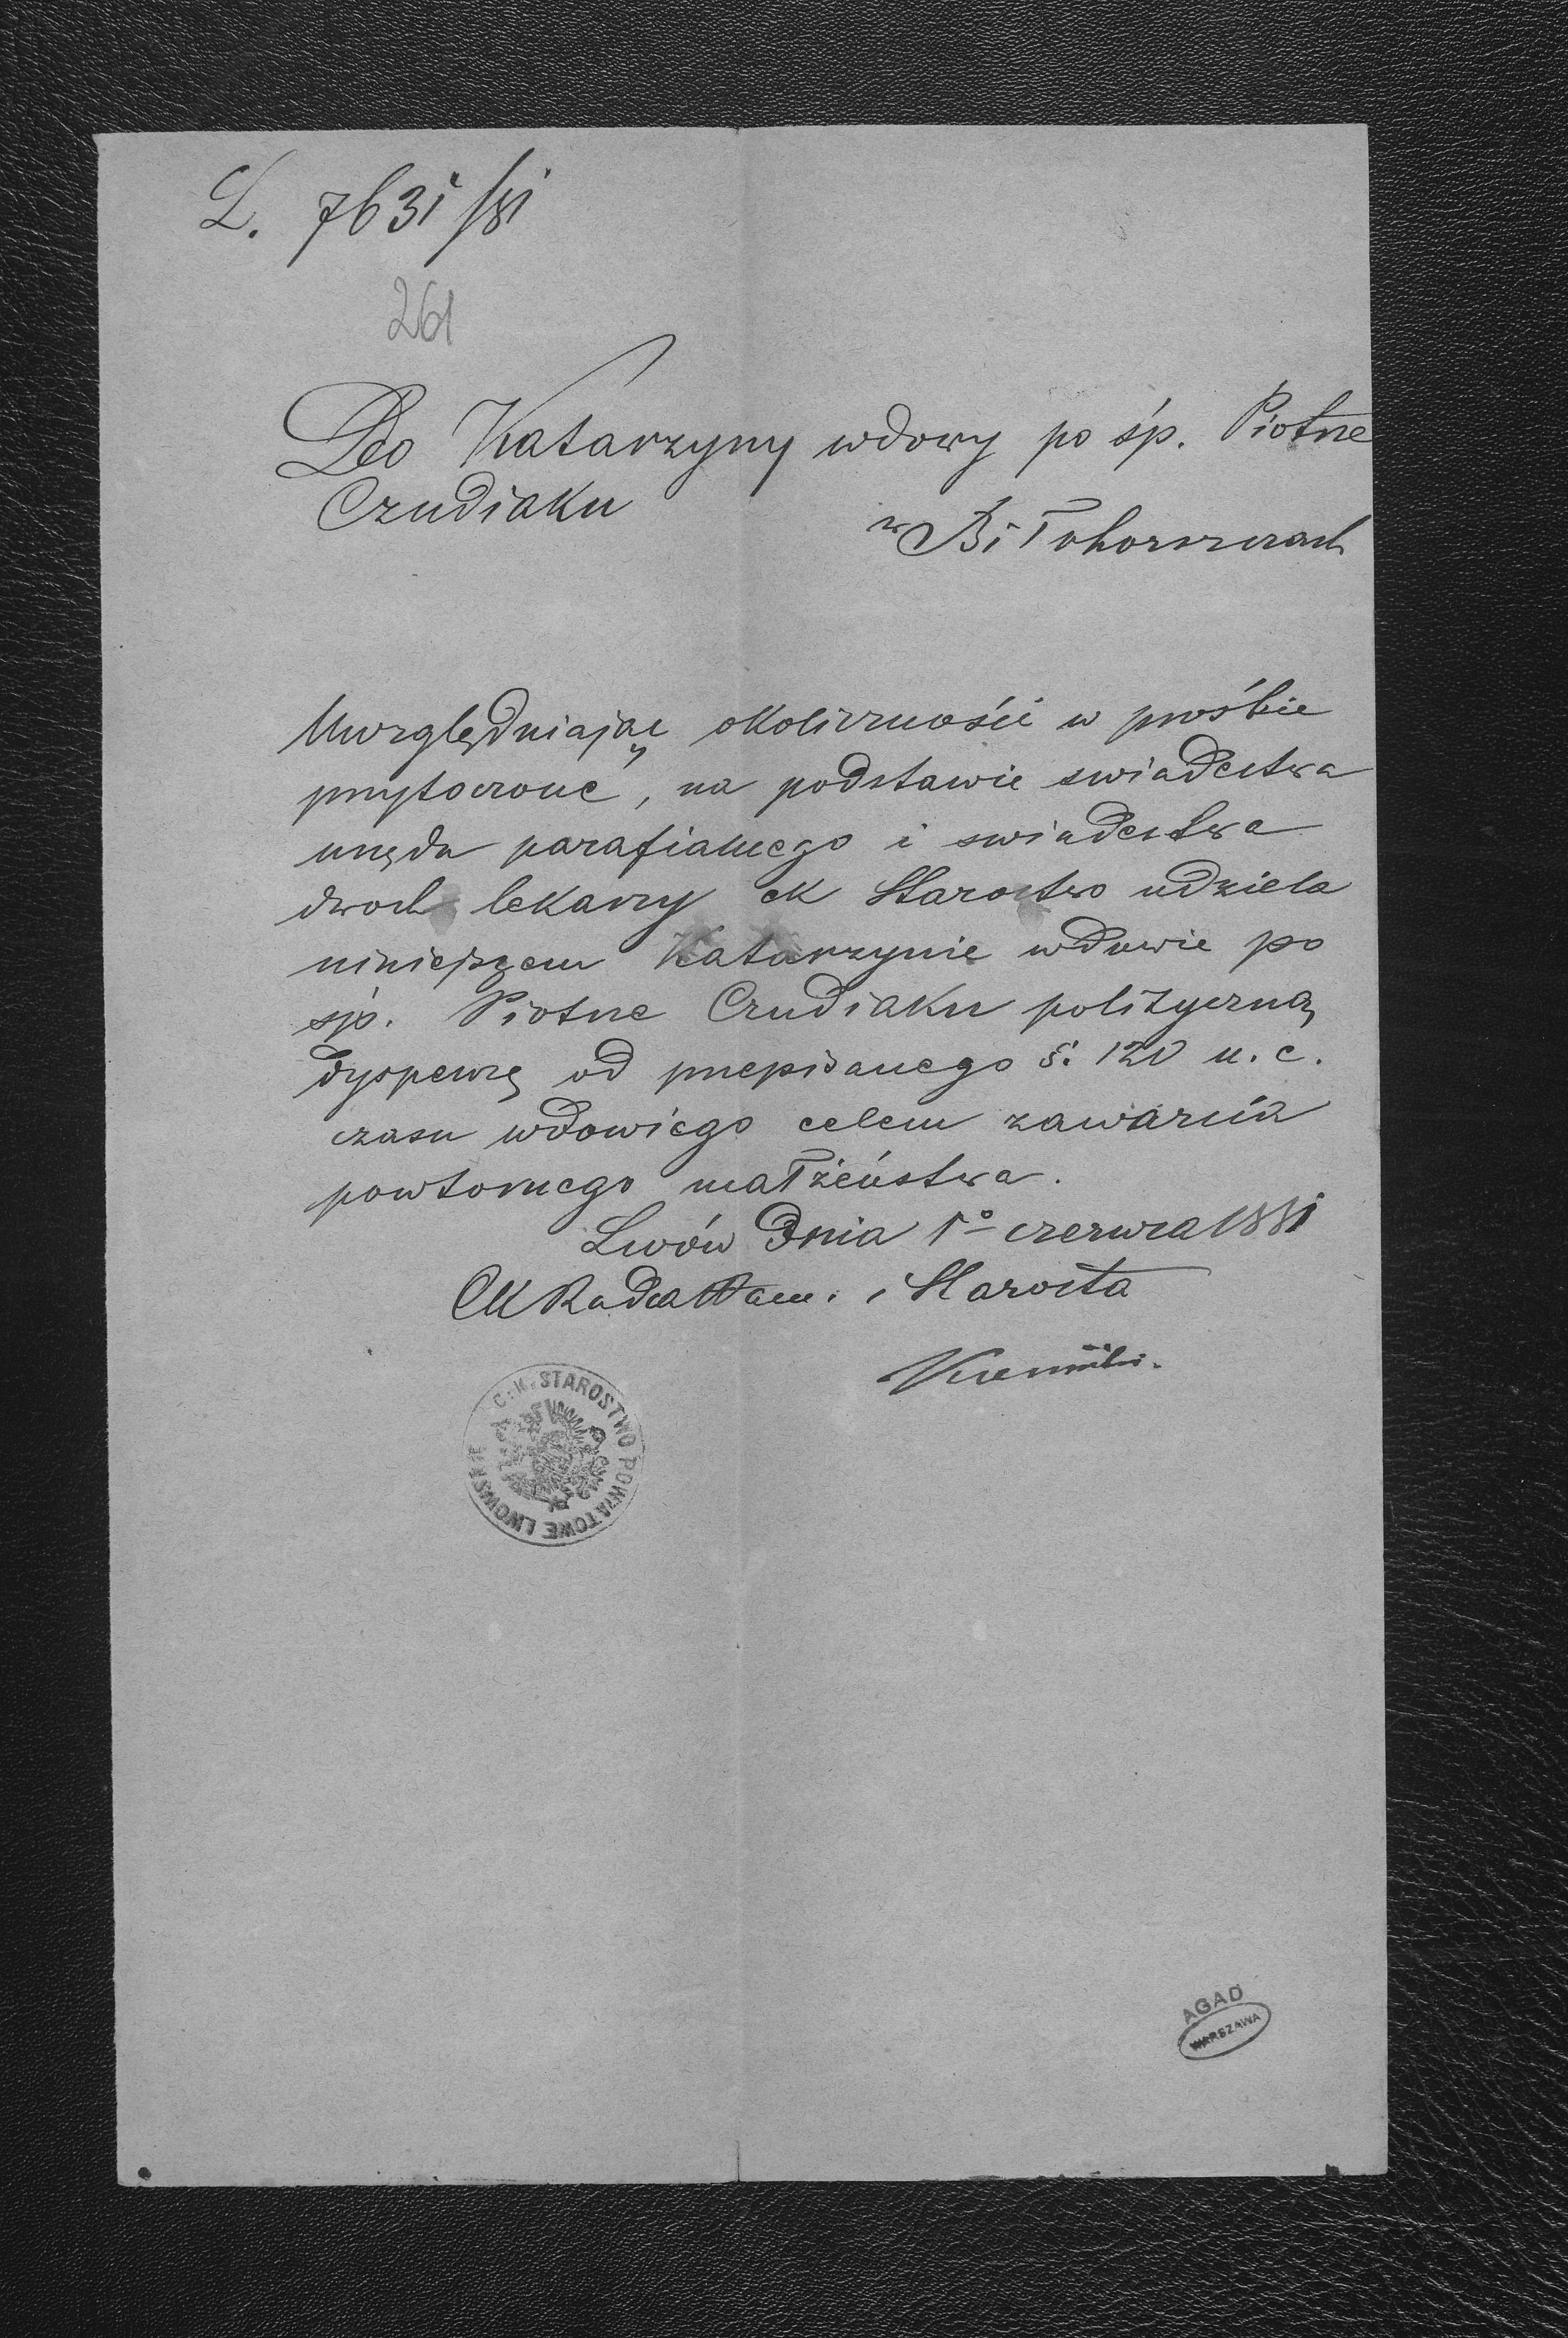 L. 7631/81
261
Do Katarzyny wdowy po śp. Piotrze
Czudiaku
w Biłohorszczach
Uwzględniając okoliczności w prośbie
przytoczone, na podstawie swiadectwa
urzędu parafialnego i swiadectwa
dwoch lekarzy ck Starostwo udziela
niniejszem Katarzynie wdowie po
śp. Piotrze Czudiaku polityczną
dyspenzę od przepisanego §. 120 u. c.
czasu wdowiego celem zawarcia
powtornego małżeństwa.
Lwów dnia 1º czerwca 1881
CK Radca Nam. i Starosta
C. K. STAROSTWO POWIATOWE LWOWSKIE
AGAD
WARSZAWA